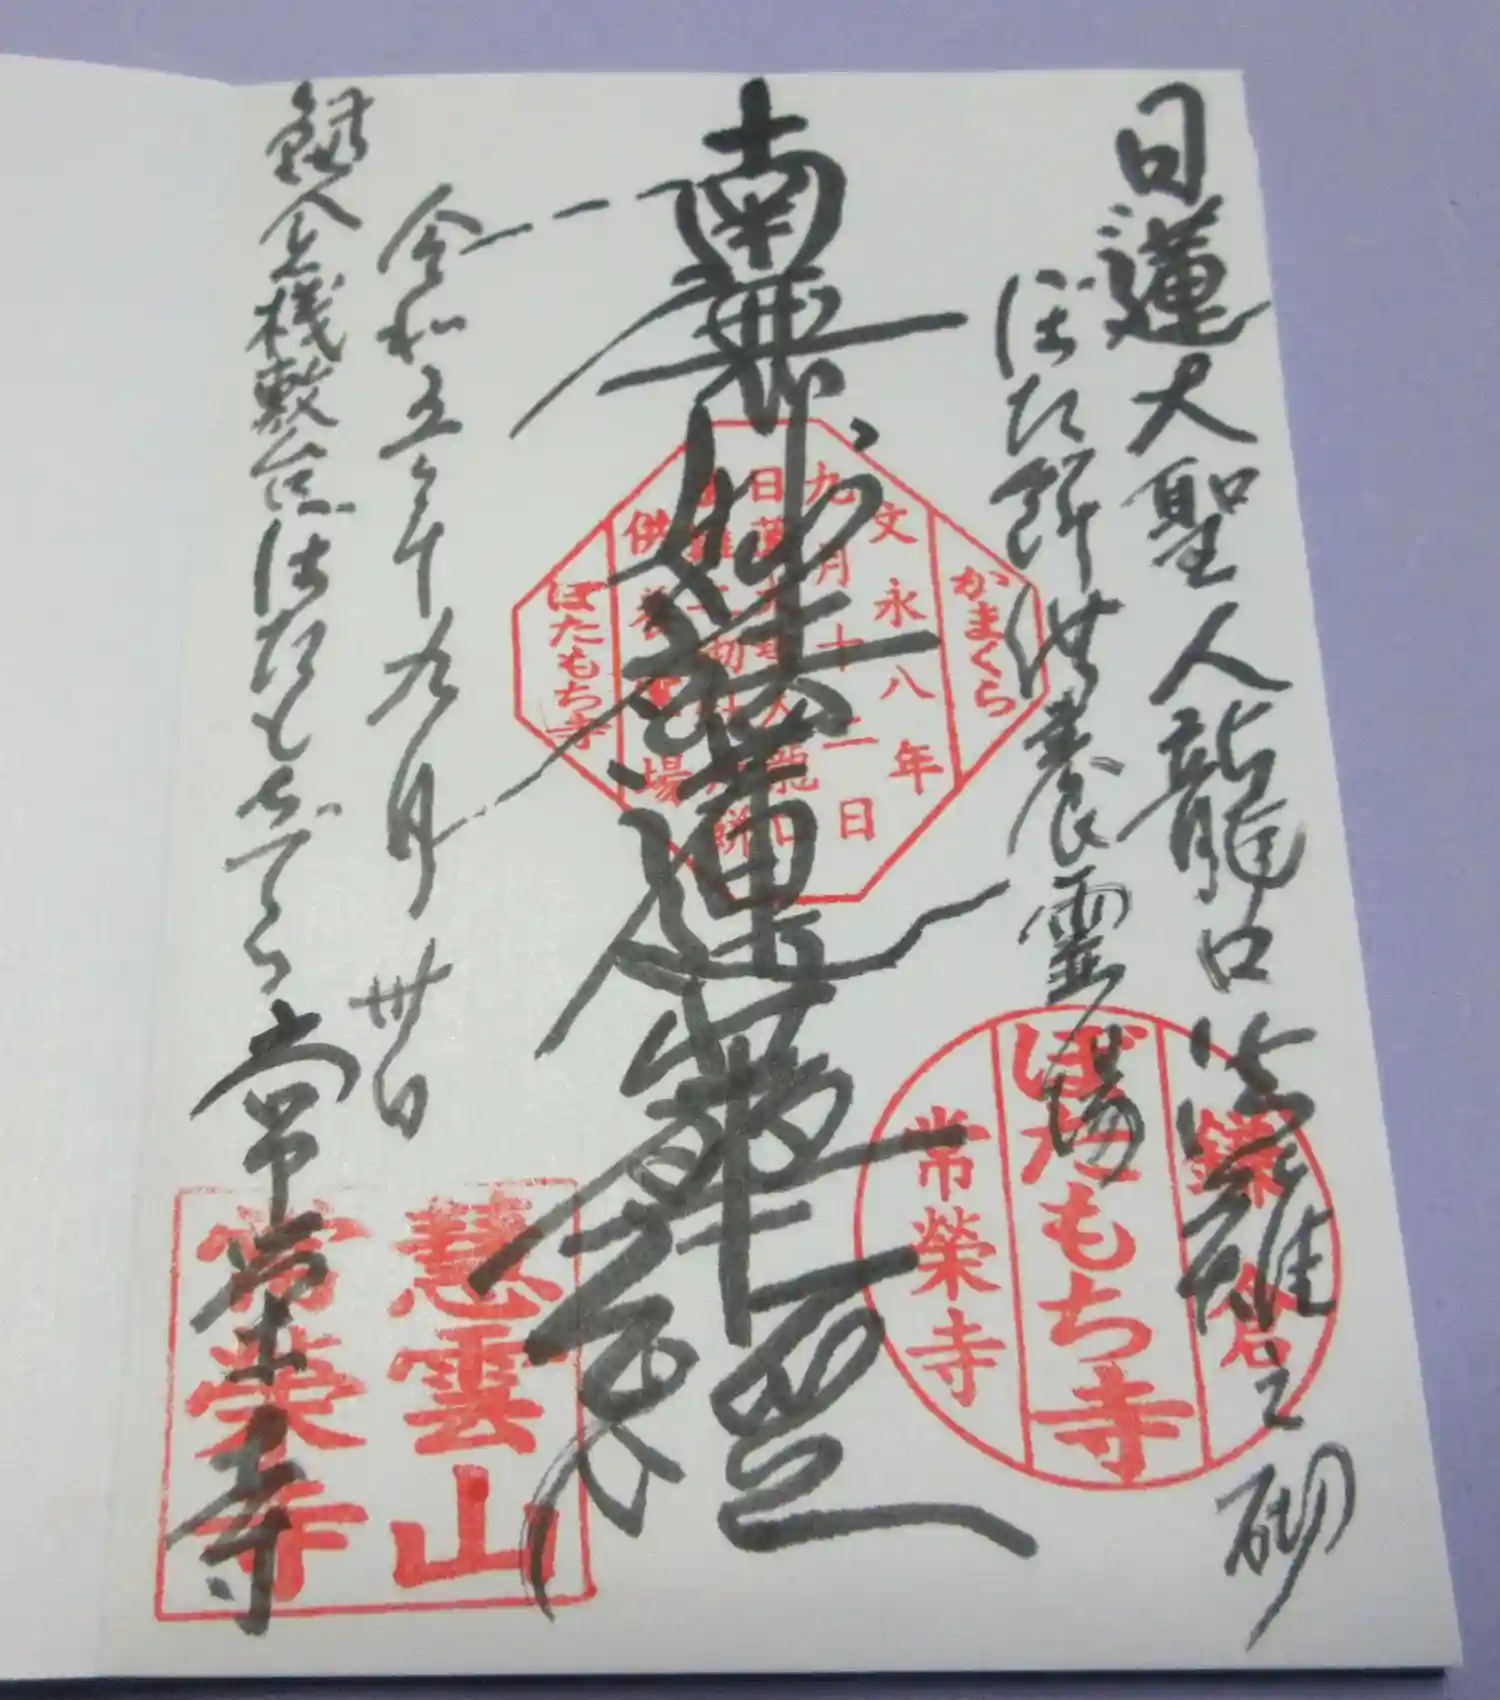 日蓮大聖人龍口法難之砌
ぼた餅供養霊場
南無妙法蓮華經
令和五年九月卅日
鎌倉桟敷
ぼたもちでら
常榮寺
かまくら
文永八年
九月十二日
日蓮大聖人龍口
供養霊場
ぼたもち寺
鎌倉
ぼたもち寺
常榮寺
慧雲山
常榮寺